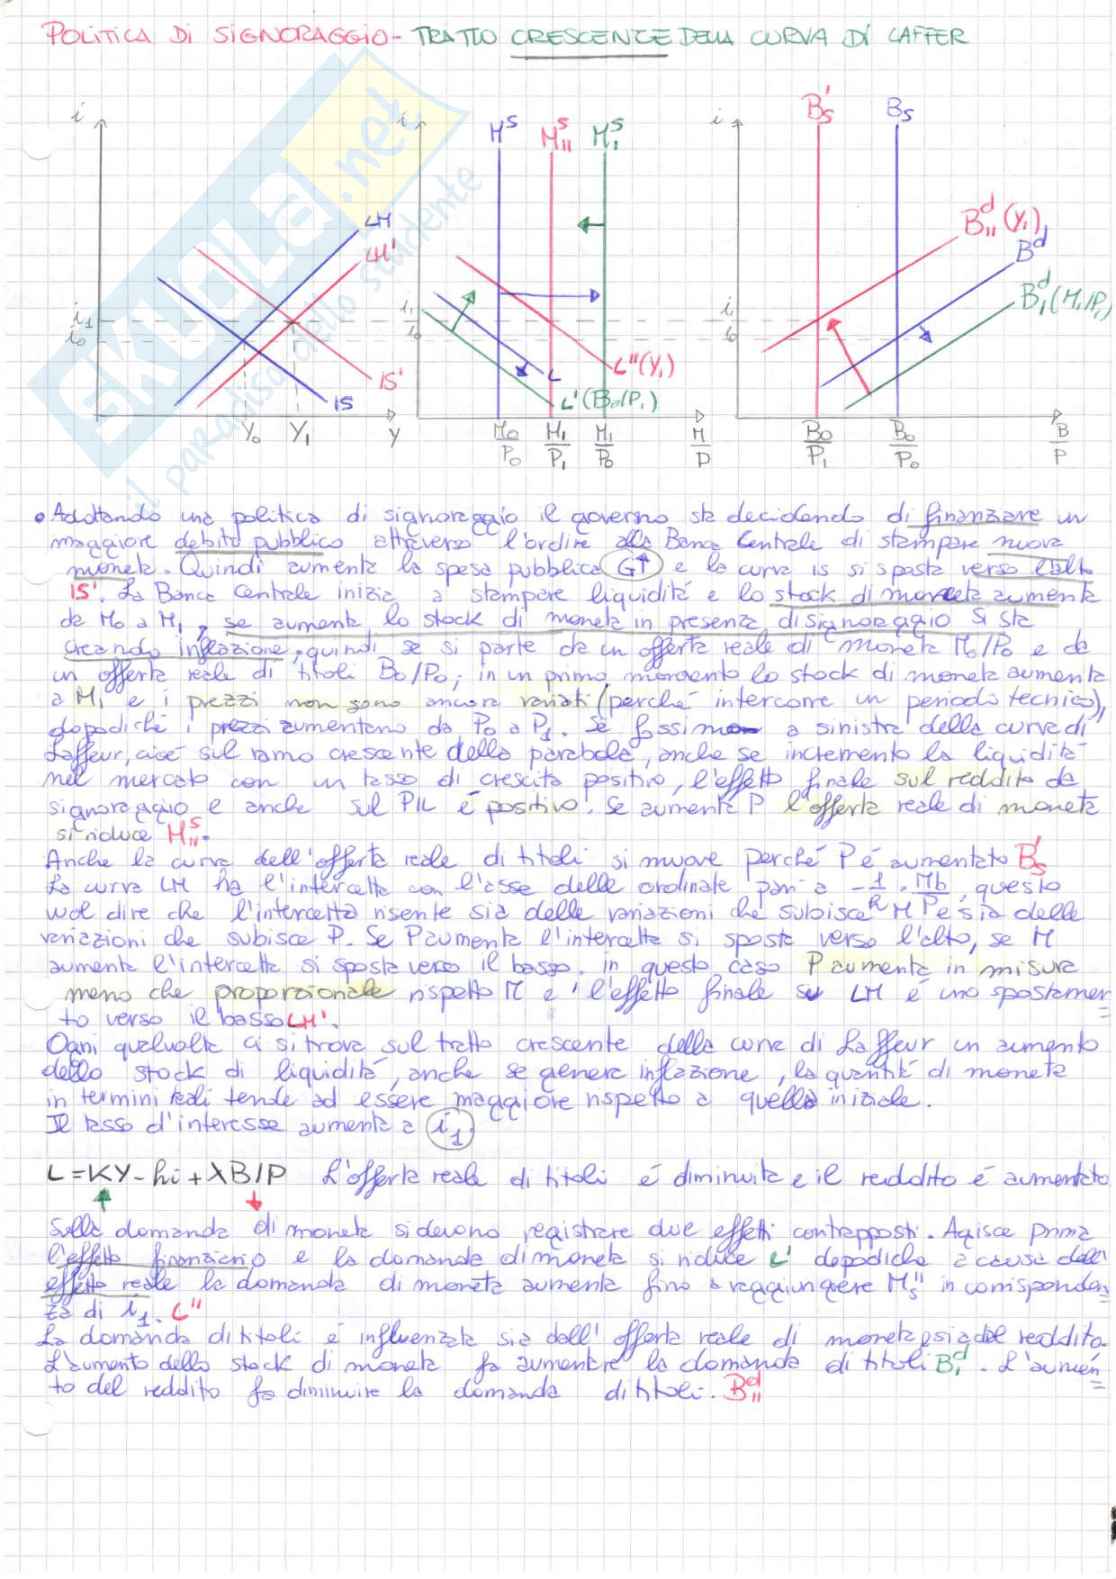 POLITICA DI SIGNORAGGIO - TRATTO CRESCENTE DELLA CURVA DI LAFFER
i
LM
LM'
i1
i0
IS'
IS
Y0 Y1 Y
i
M^S M''^S M'^S
i1
i0
L
L''(Y1)
L'(B0/P1)
M0/P0 M1/P1 M1/P0 M/P
i
B'S BS
B''^d(Y1)
B^d
B'^d(M1/P1)
i1
i0
B0/P1 B0/P0 B/P
SKUOLA.net
il paradiso dello studente
• Adottando una politica di signoraggio il governo sta decidendo di finanziare un
maggiore debito pubblico attraverso l'ordine alla Banca Centrale di stampare nuova
moneta. Quindi aumenta la spesa pubblica G↑ e la curva IS si sposta verso l'alto
IS'. La Banca Centrale inizia a stampare liquidità e lo stock di moneta aumenta
da M0 a M1, se aumenta lo stock di moneta in presenza di signoraggio si sta
creando inflazione, quindi se si parte da un offerta reale di moneta M0/P0 e da
un offerta reale di titoli B0/P0; in un primo momento lo stock di moneta aumenta
a M1 e i prezzi non sono ancora variati (perché intercorre un periodo tecnico),
dopodiché i prezzi aumentano da P0 a P1. Se fossimo a sinistra della curva di
Laffeur, cioé sul ramo crescente della parabola, anche se incremento la liquidità
nel mercato con un tasso di crescita positivo, l'effetto finale sul reddito da
signoraggio e anche sul PIL é positivo. Se aumenta P l'offerta reale di moneta
si riduce M''^S.
Anche la curva dell'offerta reale di titoli si muove perché P é aumentato B'S
La curva LM ha l'intercetta con l'asse delle ordinate pari a -1/h · Mb/P, questo
vuol dire che l'intercetta risente sia delle variazioni che subisce M e sia delle
variazioni che subisce P. Se P aumenta l'intercetta si sposta verso l'alto, se M
aumenta l'intercetta si sposta verso il basso. in questo caso P aumenta in misura
meno che proporzionale rispetto M e l'effetto finale su LM é uno spostamen
to verso il basso LM'.
Ogni qualvolta ci si trova sul tratto crescente della curva di Laffeur un aumento
dello stock di liquidità, anche se genera inflazione, la quantità di moneta
in termini reali tende ad essere maggiore rispetto a quella iniziale.
Il tasso d'interesse aumenta a i1
L=KY-hi+λB/P L'offerta reale di titoli é diminuita e il reddito é aumentato
Sulla domanda di moneta si devono registrare due effetti contrapposti. Agisce prima
l'effetto finanziario e la domanda di moneta si riduce L' dopodiche a causa dell'
effetto reale la domanda di moneta aumenta fino a raggiungere M''S in corrisponden
za di i1. L''
La domanda di titoli é influenzata sia dall'offerta reale di moneta, sia dal reddito.
L'aumento dello stock di moneta fa aumentare la domanda di titoli B'^d. L'aumen
to del reddito fa diminuire la domanda di titoli. B''^d